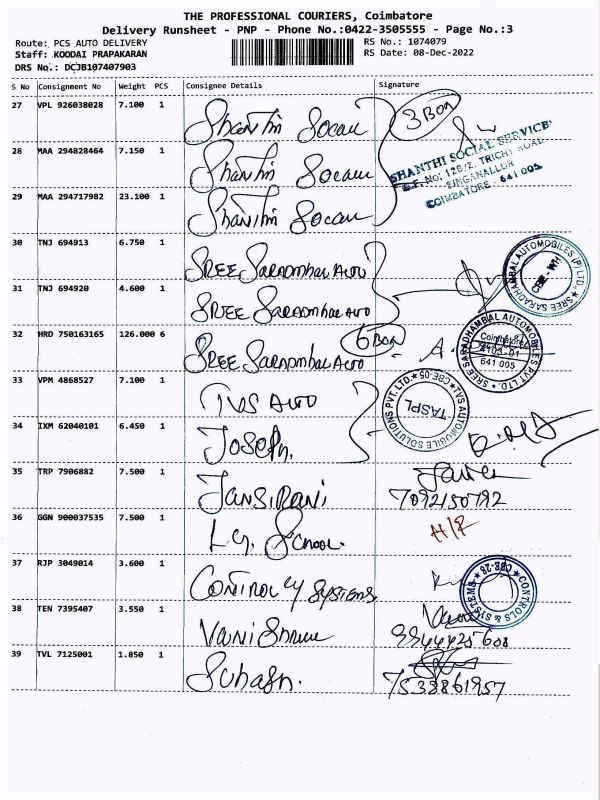 THE PROFESSIONAL COURIERS, Coimbatore
Delivery Runsheet - PNP - Phone No.:0422-3505555 - Page No.:3
Route: PCS AUTO DELIVERY
RS No.: 1074079
Staff: KOODAI PRAPAKARAN
RS Date: 08-Dec-2022
DRS No.: DCJB107407903
S No Consignment No Weight PCS Consignee Details Signature
27 VPL 926038028 7.100 1 Shanthi Socau
3 Box
28 MAA 294828464 7.150 1 Shanthi Socau
SHANTHI SOCIAL SERVICE
TRICHY ROAD
SINGANALLUR
COIMBATORE - 641 005
29 MAA 294717982 23.100 1 Shanthi Socau
30 TNJ 694913 6.750 1 SREE Saradmbal AUTO
SREE SARADHAMBAL AUTOMOBILES (P) LTD.
CBE - WH
31 TNJ 694920 4.600 1 SREE Saradmbal AUTO
32 HRD 750163165 126.000 6 SREE Saradmbal AUTO
6 Box
SREE SARADHAMBAL AUTOMOBILES PVT. LTD.
Coimbatore
641 005
33 VPM 4868527 7.100 1 TVS AUTO
TVS AUTOMOBILE SOLUTIONS PVT. LTD. CBE-05
TASPL
34 IXM 62040101 6.450 1 Joseph.
35 TRP 7906882 7.500 1 Jansi Rani
7092150792
36 GGN 900037535 7.500 1 Lg. School.
H/F
37 RJP 3049014 3.600 1 CONTROL CY SYSTEMS
CONTROLS & SYSTEMS CBE-28
38 TEN 7395407 3.550 1 Vani Shree
9944425608
39 TVL 7125001 1.850 1 Suhash.
7538861957